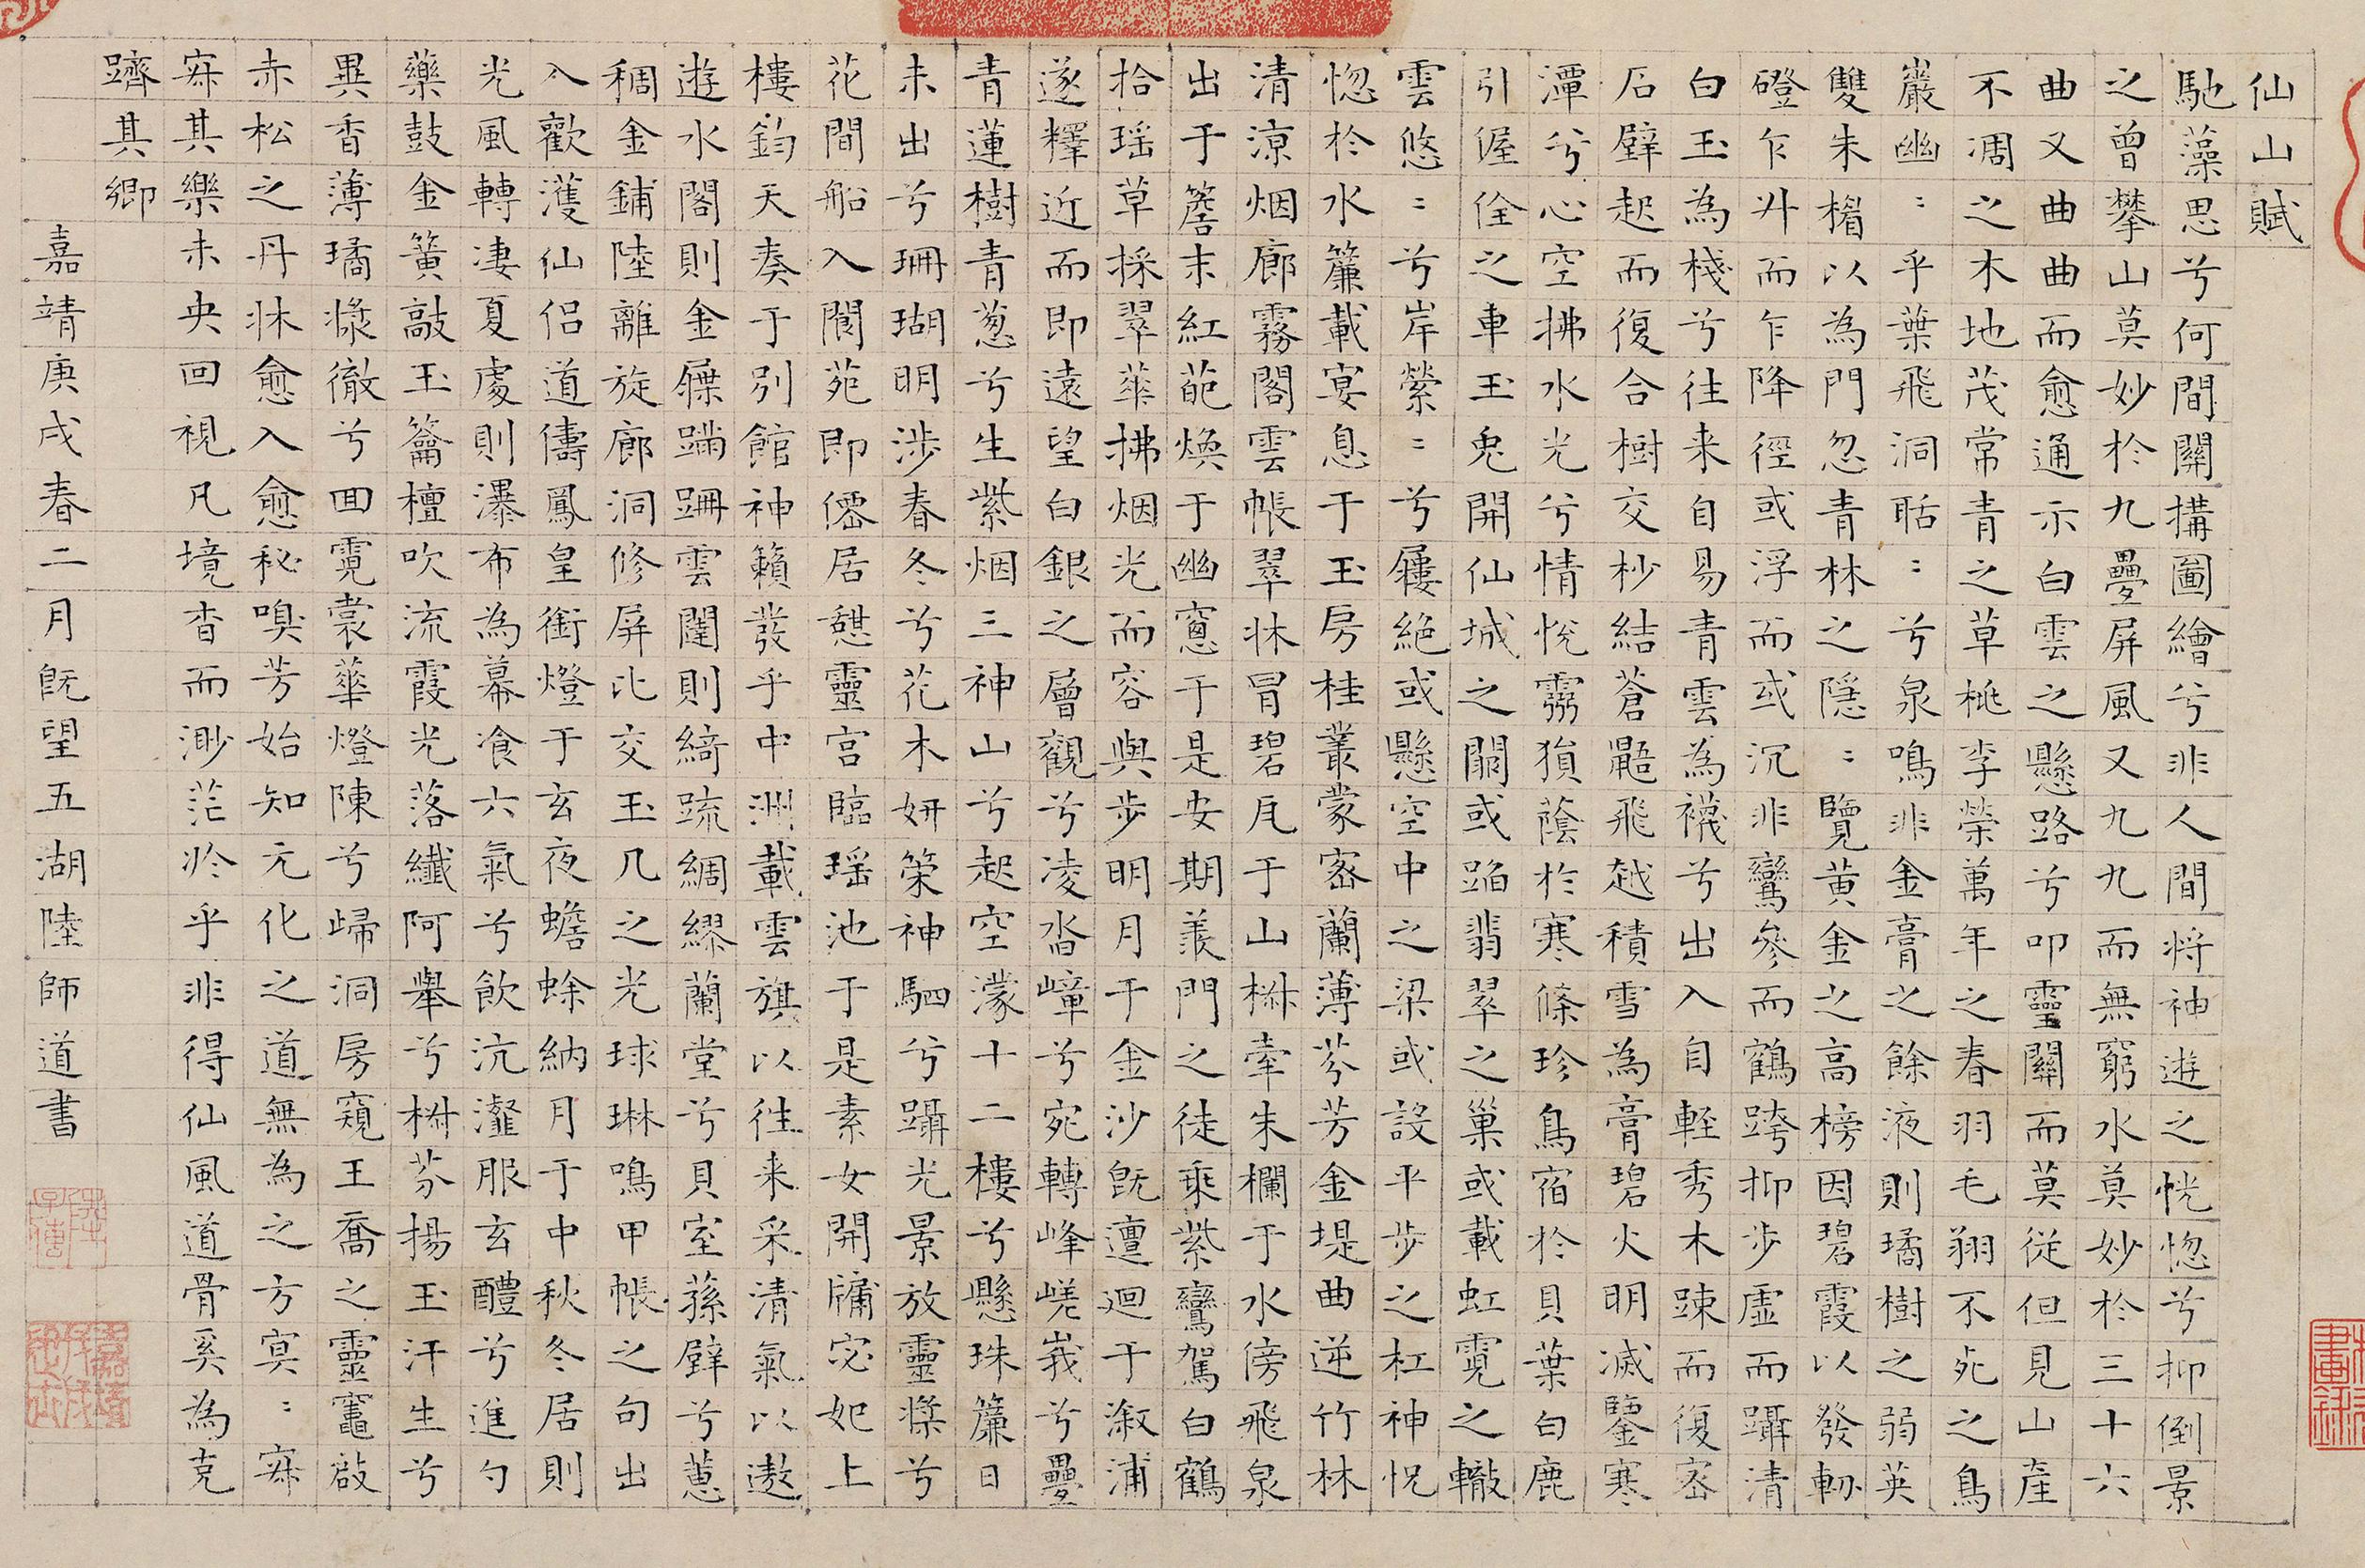 仙山賦
馳藻思兮何間關搆圖繪兮非人間将神遊之恍惚兮抑倒景
之曾攀山莫妙於九疊屏風又九九而無窮水莫妙於三十六
曲又曲曲而愈通示白雲之懸路兮叩靈關而莫從但見山產
不凋之木地茂常青之草桃李榮萬年之春羽毛翔不死之鳥
巖幽〻乎葉飛洞聒〻兮泉鳴非金膏之餘液則璚樹之弱英
雙朱楣以為門忽青林之隱〻覽黃金之高榜因碧霞以發軔
磴乍升而乍降徑或浮而或沉非鸞參而鶴跨抑步虛而躡清
白玉為棧兮往来自易青雲為襪兮出入自輕秀木踈而復密
石壁起而復合樹交杪結蒼鼯飛越積雪為膏碧火明滅鑒寒
潭兮心空拂水光兮情悅霧損蔭於寒條珍鳥宿於貝葉白鹿
引偓佺之車玉兎開仙城之關或蹈翡翠之巢或載虹霓之轍
雲悠〻兮岸縈〻兮屨絕或懸空中之梁或設平步之杠神怳
惚於水簾載宴息于玉房桂叢蒙密蘭薄芬芳金堤曲逆竹林
清涼烟廊霧閣雲帳翠牀冐碧瓦于山椒牽朱欄于水傍飛泉
出于簷末紅葩煥于幽窻于是安期羨門之徒乗紫鸞駕白鶴
拾瑶草採翠華拂烟光而容與步明月于金沙既邅迴于溆浦
遂釋近而即遠望白銀之層觀兮凌沓嶂兮宛轉峰嵯峩兮疊
青蓮樹青葱兮生紫烟三神山兮起空濛十二樓兮懸珠簾日
未出兮珊瑚明涉春冬兮花木妍策神駟兮躡光景放靈槳兮
花間船入閬苑即僊居憇靈宮臨瑶池于是素女開牗宓妃上
樓鈞天奏于別館神籟發乎中洲載雲旗以往来采清氣以遨
遊水閣則金屧蹣跚雲闈則綺疏綢繆蘭堂兮貝室蓀壁兮蕙
稠金鋪陸離旋廊洞修屏比交玉几之光球琳鳴甲帳之句出
入歡濩仙侣道儔鳳皇銜燈于玄夜蟾蜍納月于中秋冬居則
光風轉凄夏處則瀑布為幕飡六氣兮飲沆瀣服玄醴兮進勺
藥鼓金簧敲玉籥檀吹流霞光落纖阿舉兮椒芬揚玉汗生兮
異香薄璚漿徹兮回霓裳華燈陳兮歸洞房窺王喬之靈竈啟
赤松之丹牀愈入愈秘嗅芳始知元化之道無為之方㝠〻寂
寂其樂未央回視凡境杳而渺茫於乎非得仙風道骨奚為克
躋其鄉
嘉靖庚戌春二月既望五湖陸師道書